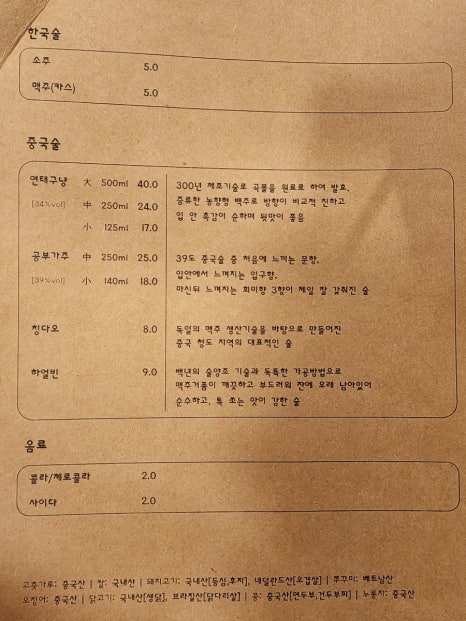 한국술
소주 5.0
맥주(카스) 5.0
중국술
연태구냥 大 500ml 40.0
[34%vol] 中 250ml 24.0
小 125ml 17.0
300년 제조기술로 곡물을 원료로 하여 발효,
증류한 농향형 백주로 방향이 비교적 진하고
입 안 촉감이 순하며 뒷맛이 좋음
공부가주 中 250ml 25.0
[39%vol] 小 140ml 18.0
39도 중국술 중 처음에 느끼는 문향,
입안에서 느껴지는 입구향,
마신뒤 느껴지는 회미향 3향이 제일 잘 갖춰진 술
칭다오 8.0
독일의 맥주 생산기술을 바탕으로 만들어진
중국 청도 지역의 대표적인 술
하얼빈 9.0
백년의 술양조 기술과 독특한 가공방법으로
맥주거품이 깨끗하고 부드러워 잔에 오래 남아있어
순수하고, 톡 쏘는 맛이 강한 술
음료
콜라/제로콜라 2.0
사이다 2.0
고춧가루: 중국산 | 쌀: 국내산 | 돼지고기: 국내산[등심,후지], 네덜란드산[오겹살] | 쭈꾸미: 베트남산
오징어: 중국산 | 닭고기: 국내산[생닭], 브라질산[닭다리살] | 콩: 중국산[연두부,건두부피] | 누룽지: 중국산